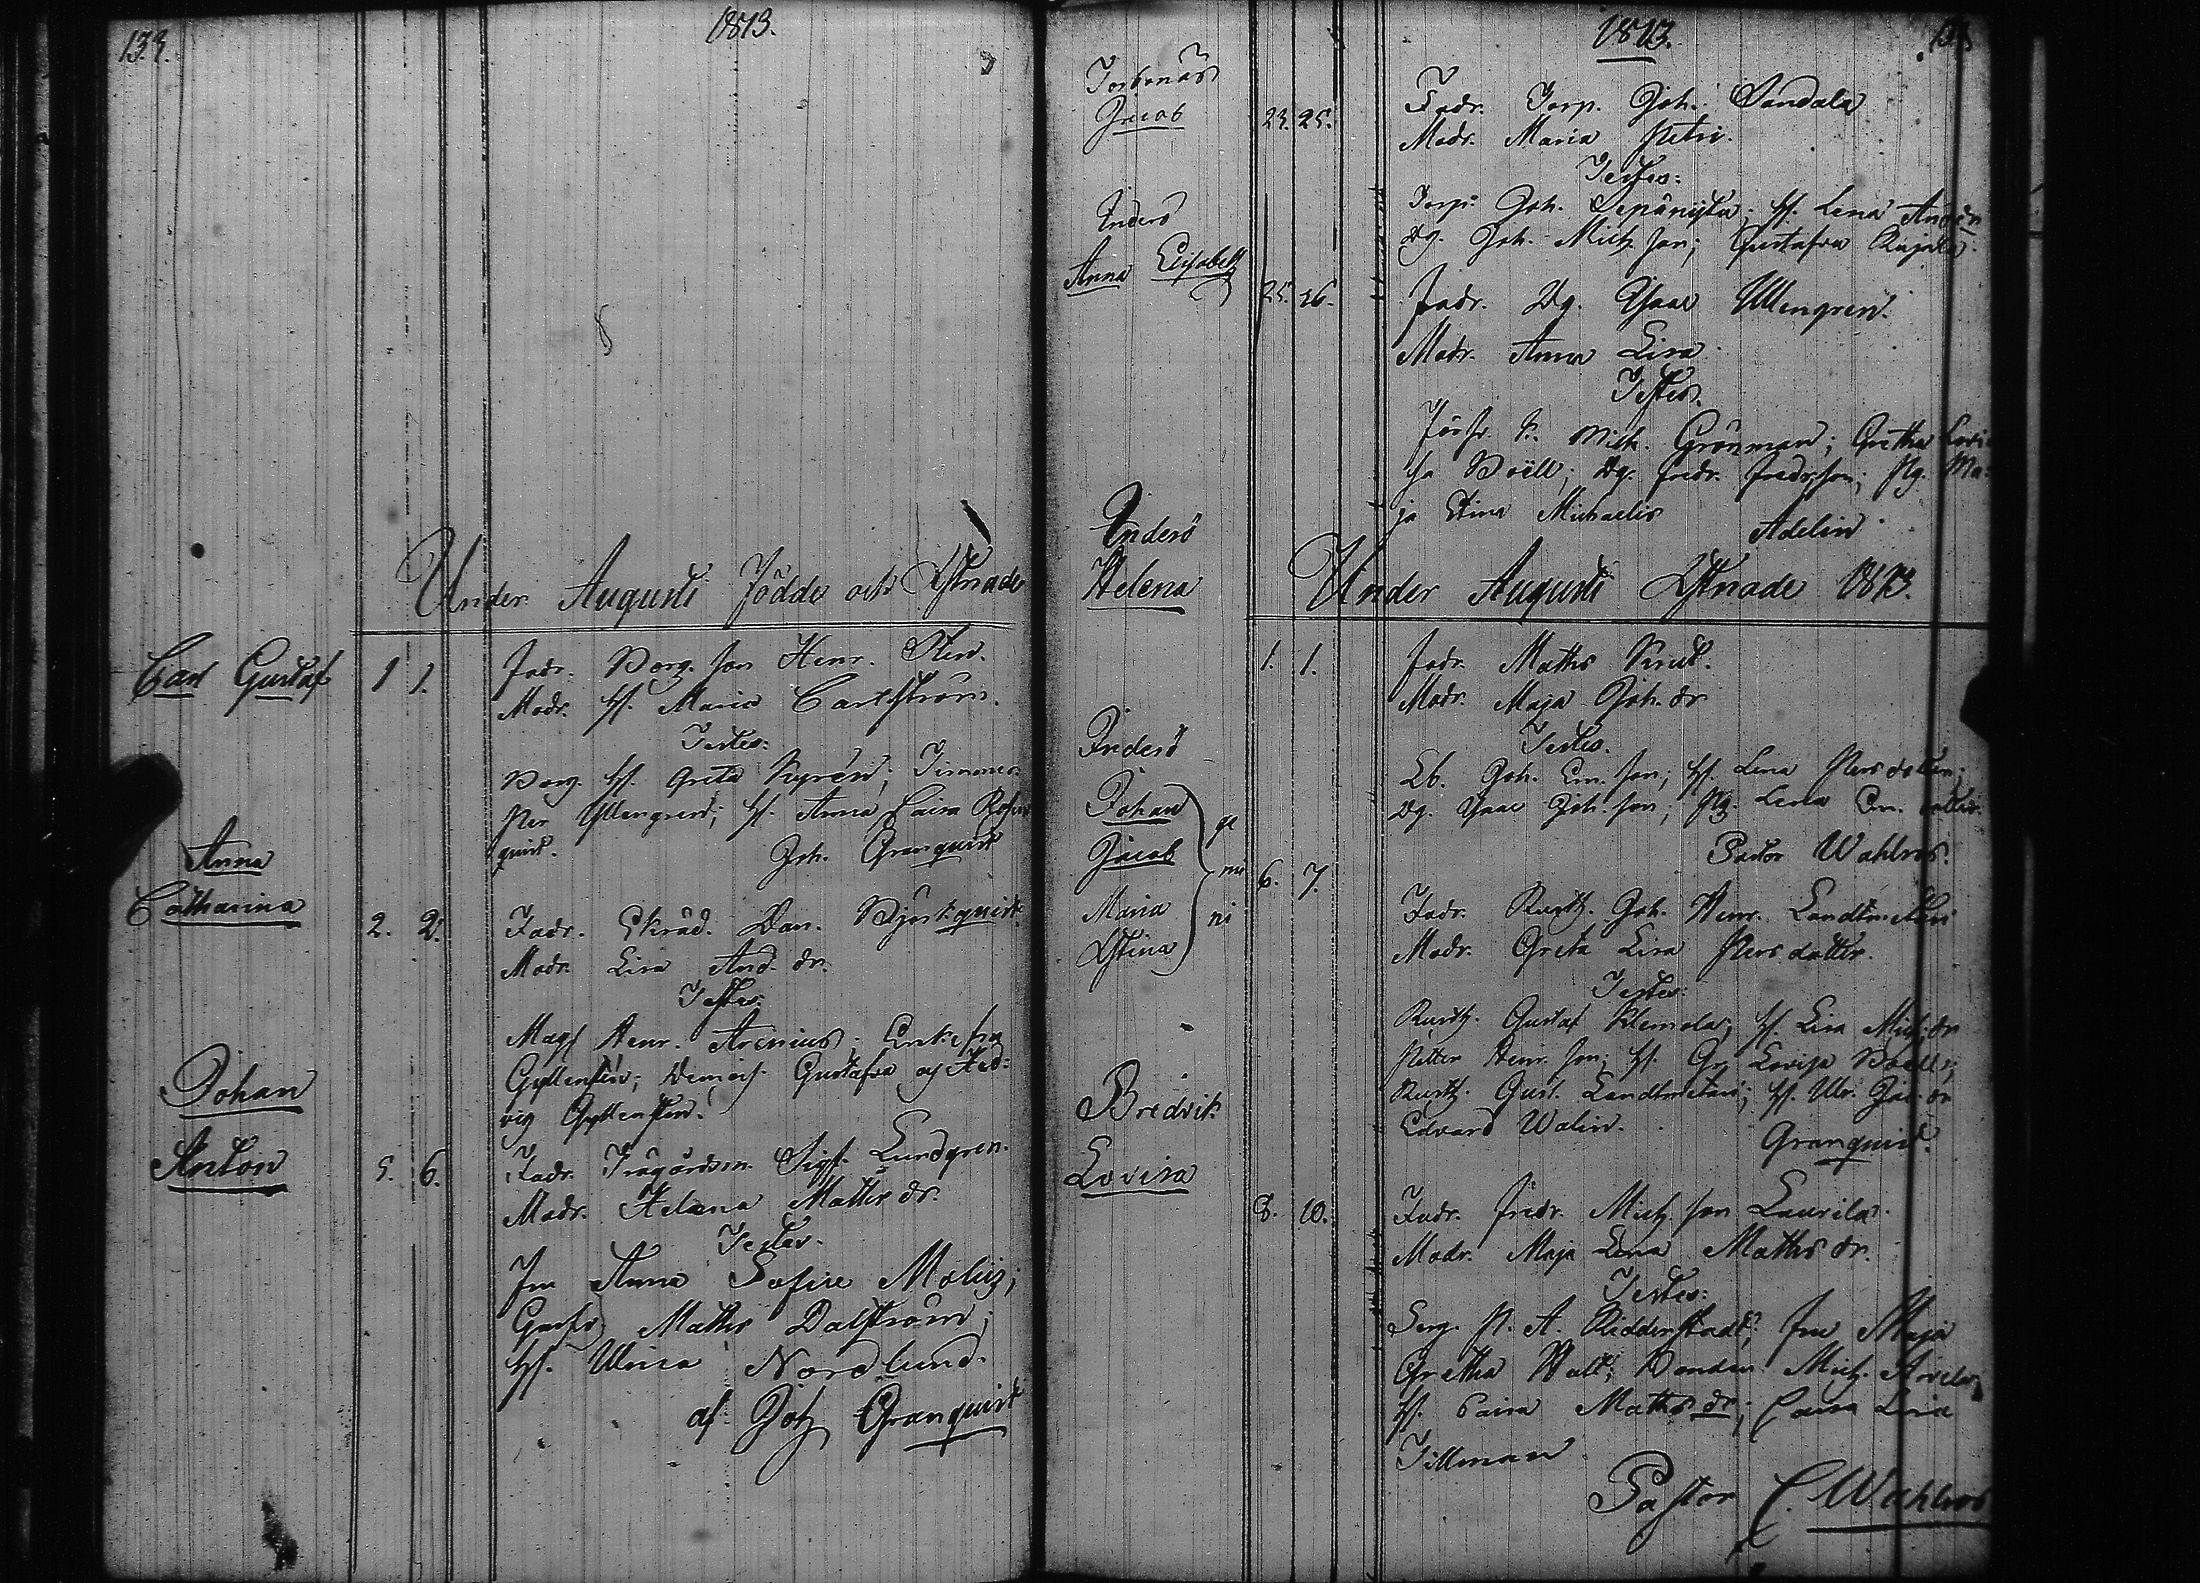 133.
1813.
Under Augusti Födde och Xstnade
Carl Gustaf 1 1. Fadr. Borg. son Henr. Sten.
Modr. H. Maria Carlström.
Testes:
Borg. H. Greta Kyrén; Timmer.
Per Ullengren; H. Anna Caisa Rosen
quist. Joh. Granquist
Anna
Catharina 2. 2. Fadr. Skräd. Dan. Björkquist
Modr. Lisa And. dr.
Testes:
Mag Henr. Arenius; Enkefru
Gyllenstén; Demois. Gustafva og Hed:
vig Gyllensten.
Johan
Anton 5. 6. Fadr. Trägårdsm. Sigf. Lundgren.
Modr. Helena Matts dr.
Testes.
Fru Anna Sofie Moliis;
Matts Dalström;
H. Ulrica Nordlund.
af Joh Granquist
1813.
Jacob 23. 25. Fadr. Torp. Joh. Sandala
Modr. Maria Petri.
Testes:
Torp. Joh. H. Lena Anders
Dg. Joh. Mich. son; Gustafva
Inderö
Anna Elisabeth 25. 26. Fadr. Dg. Isaac Ullengren.
Modr. Anna Lisa.
Testes.
Mich. Grönman; Gretha Lovi
sa Boëll; Dg. Fredr. Fredr. son; Pg. Ma:
ja Stina Michaelis Adelin.
Inderö
Helena
Under Augusti Xstnade 1813.
1. 1. Fadr. Matts Knut.
Modr. Maja Joh. dr
Testes.
Lb. Joh. Em. son; H. Lena Pers dotter;
Dg. Isaac Joh. son; Pg. Lena Em. dotter.
Pastor Wahlroos.
Inderö
Johan
Jacob
Maria
Xstina
ge
mi
ni
6. 7. Fadr. Rusth. Joh. Henr. Landtmeteri
Modr. Greta Lisa Pers dotter.
Testes:
Rusth. Gustaf Klemola; H. Lisa Mich. dr
Petter Henr. son; H. Gr. Lovisa Boell;
Rusth. Gust. Landtmeteri; H. Ulr. Jac. dr
Edvard Walin. Granquist.
Bredvik
Lovisa 8. 10. Fadr. Fredr. Mich. son Laurila.
Modr. Maja Lena Matts dr.
Testes:
Serg. P. A. Ridderstad; Fru Maja
Gretha Wall; Bonden Mich. Arvela;
H. Caisa Matts dr; Caisa Lisa
Tillman.
Pastor C. Wahlroos